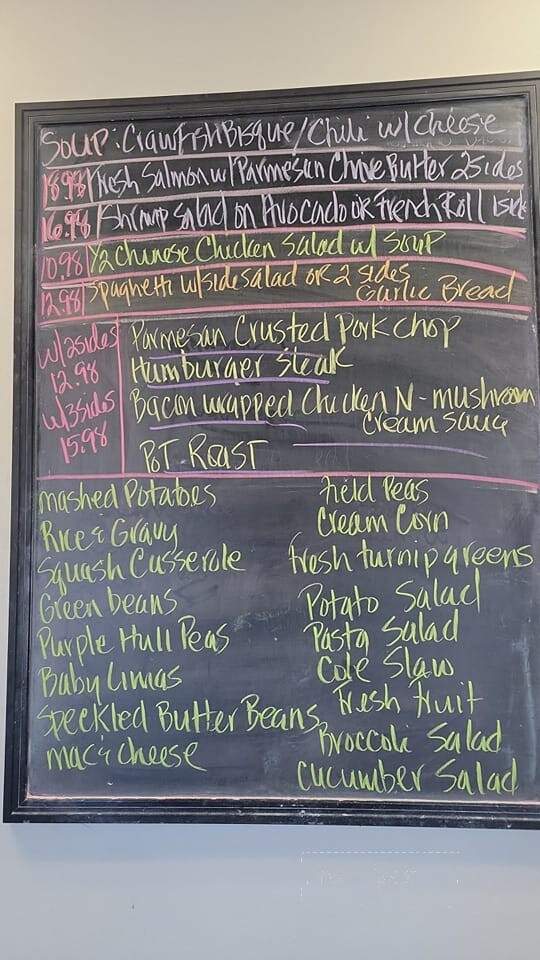 Soup: Crawfish Bisque/Chili w/ cheese
18.98 Fresh Salmon w/ Parmesan Chive Butter 2 sides
16.98 Shrimp salad on Avocado or French Roll 1 side
10.98 1/2 Chinese Chicken Salad w/ Soup
12.98 Spaghetti w/ side salad or 2 sides
Garlic Bread
w/2 sides
12.98
w/3 sides
15.98
Parmesan Crusted Pork chop
Hamburger Steak
Bacon wrapped Chicken N - mushroom
Cream sauce
Pot-Roast
mashed Potatoes
Rice & Gravy
Squash Casserole
Green beans
Purple Hull Peas
Baby Limas
Speckled Butter Beans
mac & cheese
Field Peas
Cream Corn
Fresh turnip greens
Potato Salad
Pasta Salad
Cole Slaw
Fresh Fruit
Broccoli Salad
Cucumber Salad